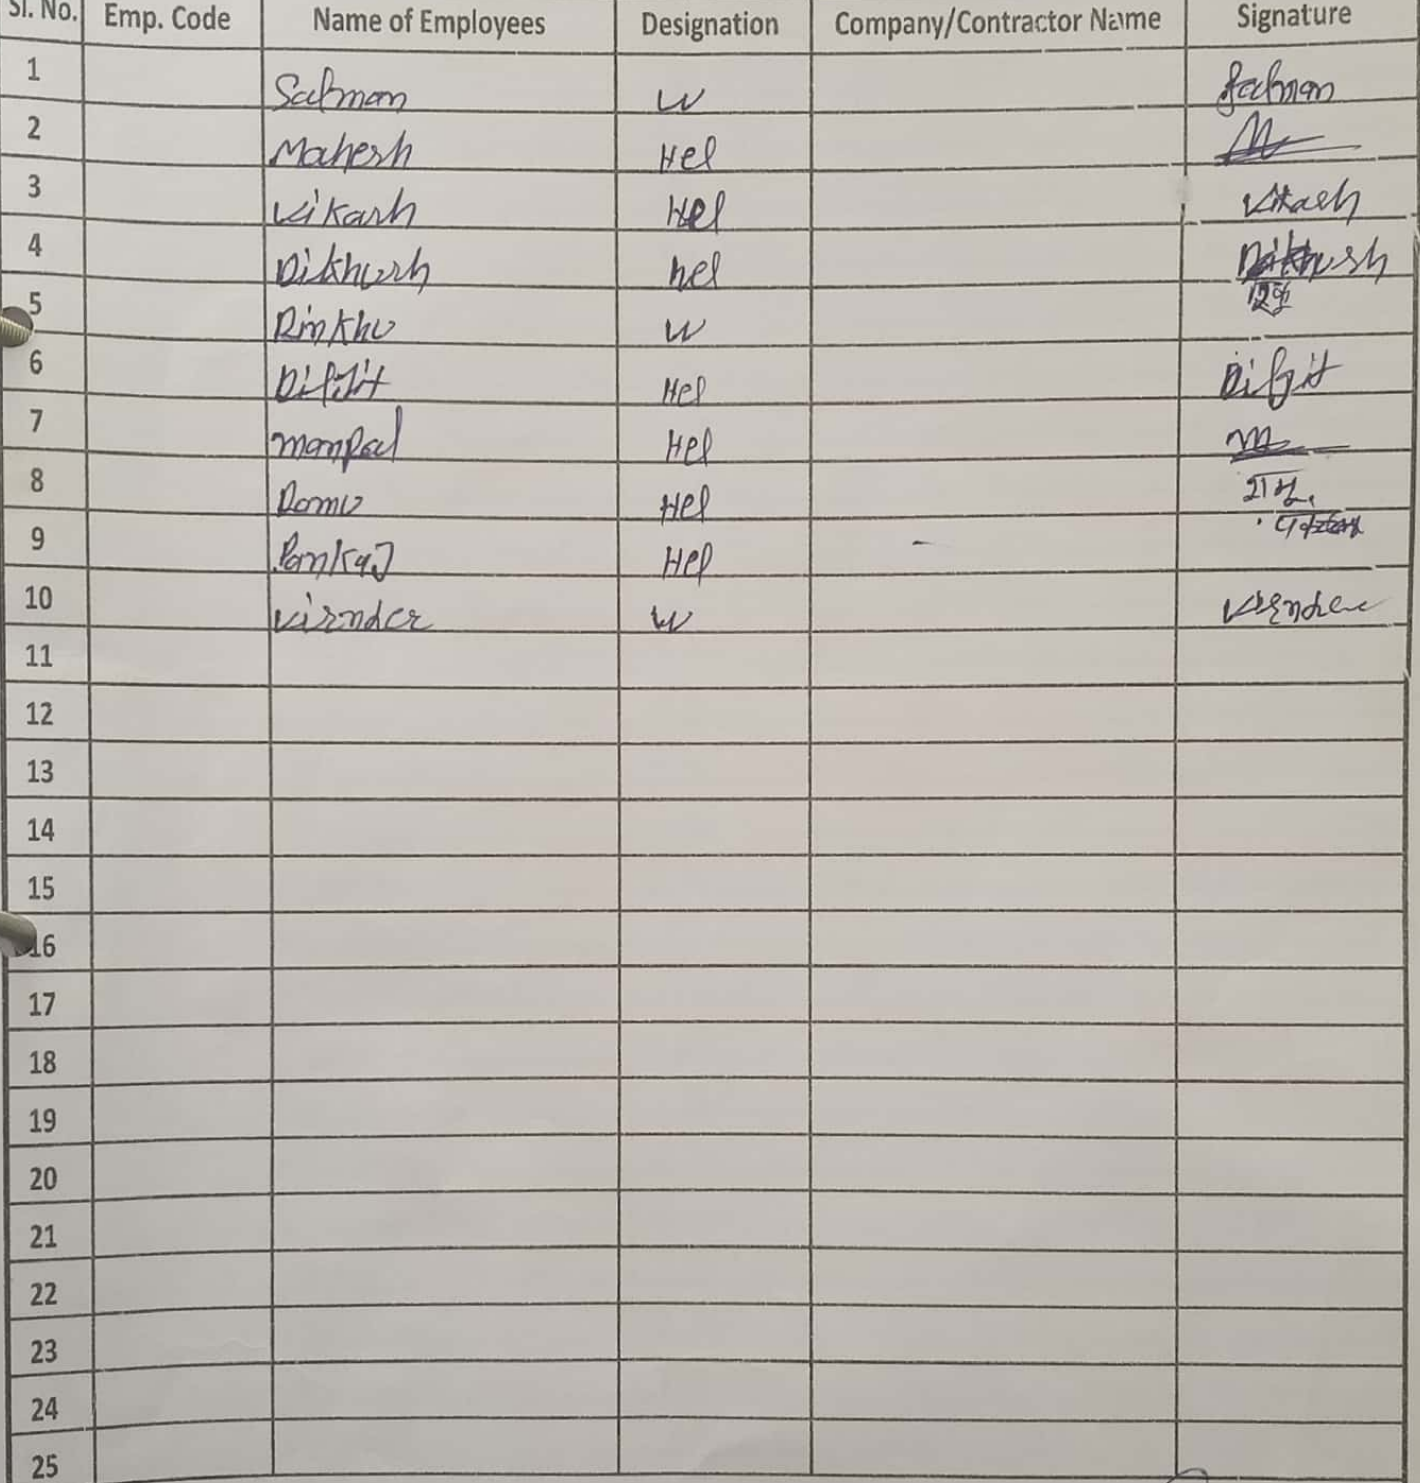 Sl. No. Emp. Code Name of Employees Designation Company/Contractor Name Signature
1 Salman W Salman
2 Mahesh Hel
3 Vikash Hel Vikash
4 Dikhush hel Dikhush
5 Rinkhu W
6 Diljit Hel Diljit
7 manpal Hel
8 Ramu Hel रामु
9 Pankaj Hel
10 Virnder W Virender
11
12
13
14
15
16
17
18
19
20
21
22
23
24
25